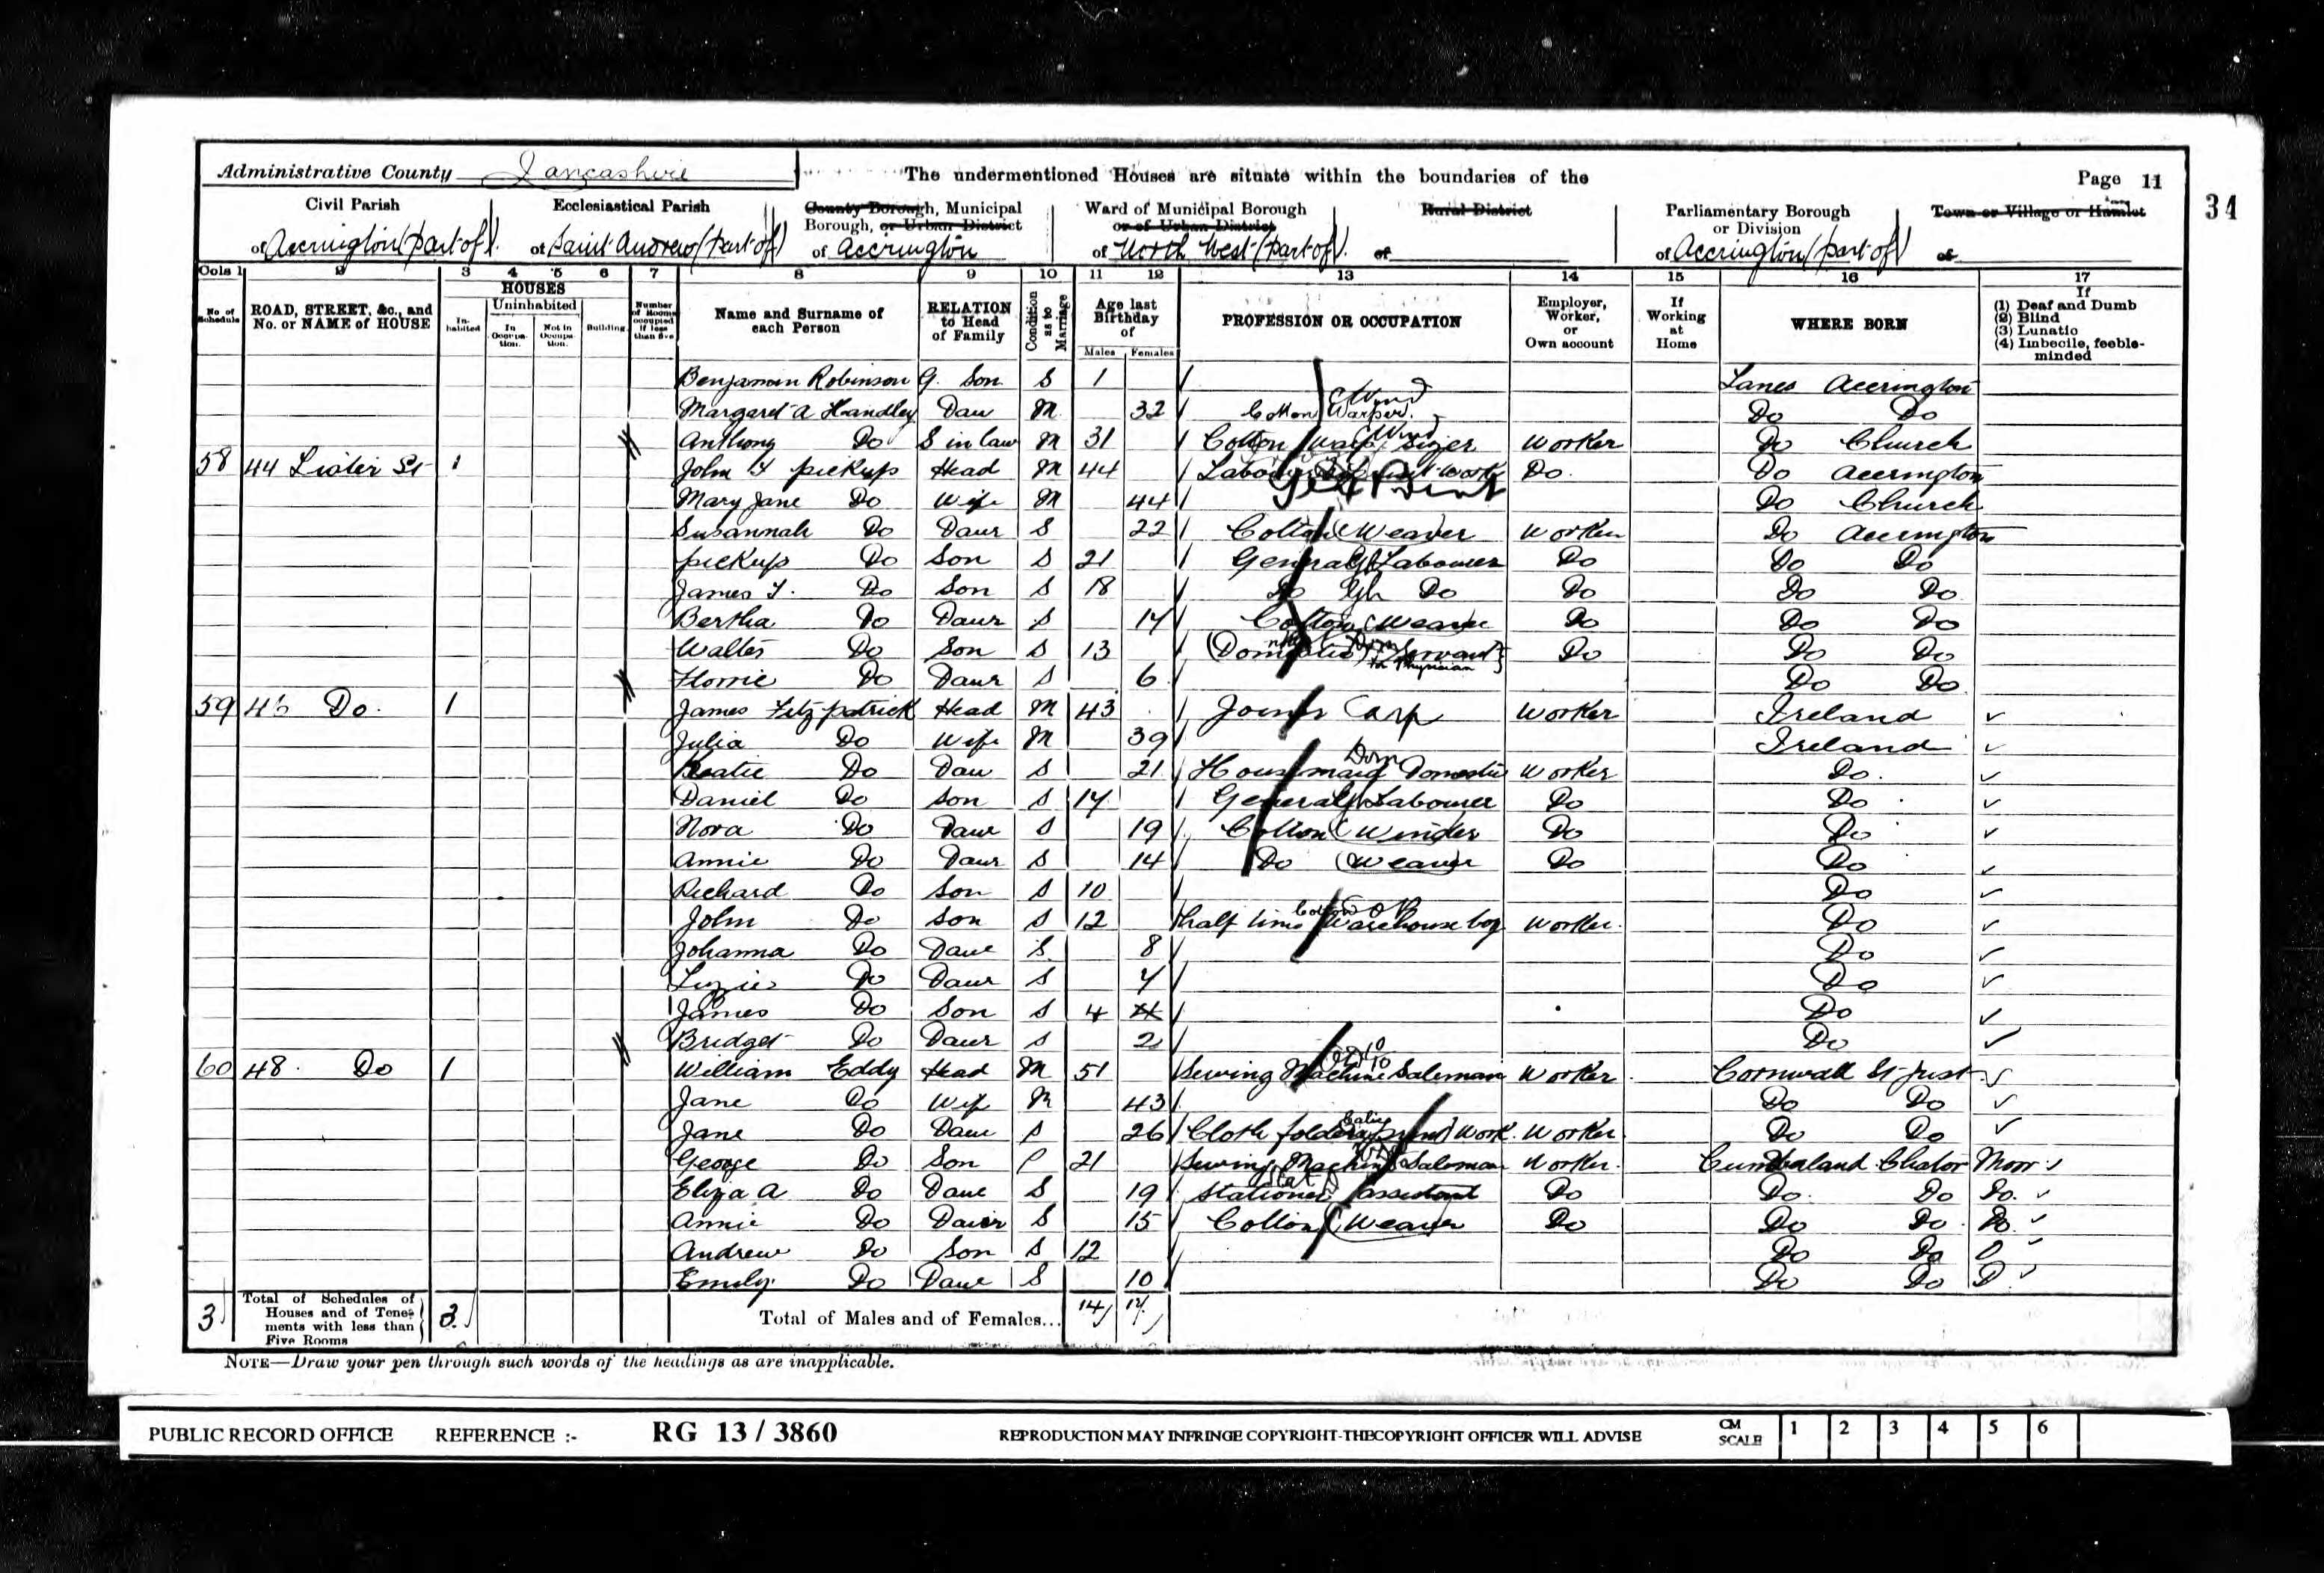 Administrative County Lancashire
The undermentioned Houses are situate within the boundaries of the
Page 11
34
Civil Parish
of Accrington (part of)
Ecclesiastical Parish
of Saint Andrew (part of)
County Borough, Municipal
Borough, or Urban District
of Accrington
Ward of Municipal Borough
or of Urban District
of North West (part of)
Rural District
of
Parliamentary Borough
or Division
of Accrington (part of)
Town or Village or Hamlet
of
Cols 1 2 3 4 5 6 7 8 9 10 11 12 13 14 15 16 17
No of Schedule
ROAD, STREET, &c., and No. or NAME of HOUSE
HOUSES
Inhabited
Uninhabited
In Occupation.
Not in Occupation.
Building
Number of Rooms occupied if less than five
Name and Surname of each Person
RELATION to Head of Family
Condition as to Marriage
Age last Birthday of
Males Females
PROFESSION OR OCCUPATION
Employer, Worker, or Own account
If Working at Home
WHERE BORN
If
(1) Deaf and Dumb
(2) Blind
(3) Lunatic
(4) Imbecile, feeble-minded
Benjamin Robinson G. Son S 1 Lancs Accrington
Margaret A Handley Dau M 32 Cotton Warper Do Do
Anthony Do S in law M 31 Cotton Warp Sizer Worker Do Church
58 44 Lister St 1 John pickup Head M 44 Labourer Do. Do Accrington
Mary Jane Do Wife M 44 Do Church
Susannah Do Daur S 22 Cotton Weaver Worker Do Accrington
pickup Do Son S 21 General Labourer Do Do Do
James T. Do Son S 18 Do Do Do Do Do
Bertha Do Daur S 17 Cotton Weaver Do Do Do
Walter Do Son S 13 (Domestic Servant) for Physician Do Do Do
Florrie Do Daur S 6 Do Do
59 46 Do. 1 James Fitzpatrick Head M 43 Joiner Carp Worker Ireland
Julia Do Wife M 39 Ireland
Beatie Do Dau S 21 Housemaid Domestic Dom Worker Do.
Daniel Do Son S 17 General Labourer Do Do
Nora Do Daur S 19 Cotton Winder Do Do
Annie Do Daur S 14 Do Weaver Do Do
Richard Do Son S 10 Do
John Do Son S 12 half time Cotton Warehouse boy Worker. Do
Johanna Do Daur S. 8 Do
Lizzie Do Daur S 7 Do
James Do Son S 4 Do
Bridget Do Daur S 2 Do
60 48. Do 1 William Eddy Head M 51 Sewing Machine Saleman Worker Cornwall St Just
Jane Do Wife M 43 Do Do
Jane Do Daur S 26 Cloth folder print Work. Worker Do Do
George Do Son S 21 Sewing Machine Saleman Worker. Cumberland Clator Moor
Eliza A Do Daur S 19 Stationer assistant Do Do. Do Do.
Annie Do Daur S 15 Cotton Weaver Do Do Do Do.
Andrew Do Son S 12 Do Do D
Emily Do Daur S 10 Do Do D
3 Total of Schedules of Houses and of Tenements with less than Five Rooms 3.
Total of Males and of Females... 14 17
NOTE—Draw your pen through such words of the headings as are inapplicable.
PUBLIC RECORD OFFICE REFERENCE :- RG 13 / 3860 REPRODUCTION MAY INFRINGE COPYRIGHT-THE COPYRIGHT OFFICER WILL ADVISE CM SCALE 1 2 3 4 5 6